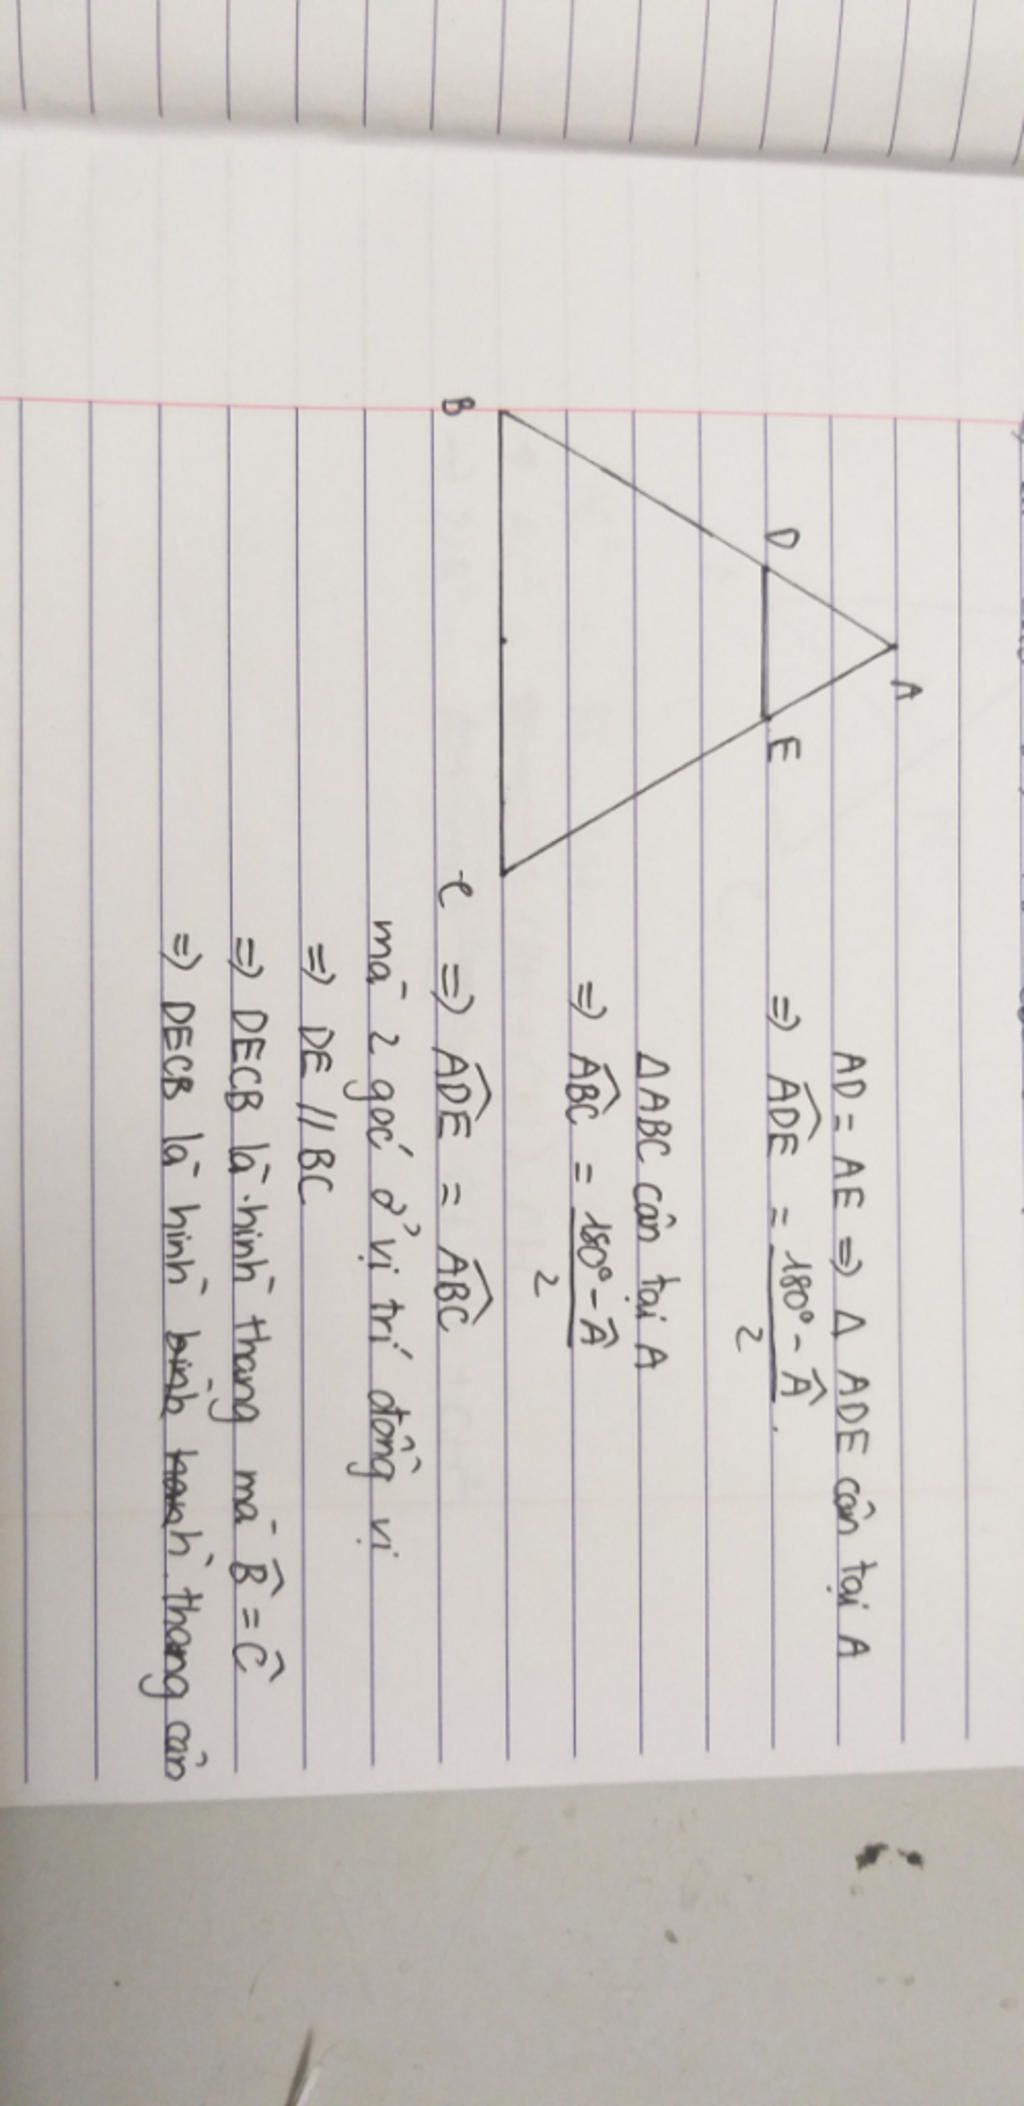 A
D
E
B
C
AD = AE => Δ ADE cân tại A
=> ADE^ = 180° - Â / 2 .
Δ ABC cân tại A
=> ABC^ = 180° - Â / 2
=> ADE^ = ABC^
mà 2 góc ở vị trí đồng vị
=> DE // BC
=> DECB là hình thang mà B̂ = Ĉ
=> DECB là hình bình hành thang cân